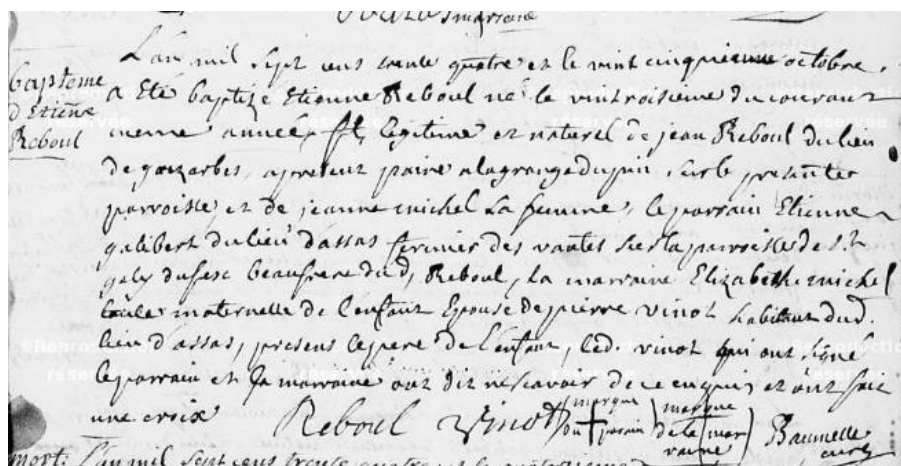 baptome
d'Etiene
Reboul
L'an mil sept cens trente quatre et le vint cinquieme octobre
a eté baptizé Etienne Reboul né le vintroisieme du courant
meme année, fils legitime et naturel de jean Reboul du lieu
de a present paire a la grange du pin sur le presente
parroisse, et de jeanne michel sa femme, le parrain Etienne
galibert du lieu d'assas fermier des vautes sur la parroisse de St
gely du fesc beaufrere dud, Reboul, la marraine Elizabeth michel
maternelle de l'enfant Epouse de pierre vinot habitant dud.
lieu d'assas, presens le pere de l'enfant, led. vinot qui ont signé
le parrain et la marraine ont dit ne scavoir de ce enquis, et ont fait
une croix Reboul Vinot marque du parain marque de la marraine Baumelle curé
mort: L'an mil sept cens trente quatre et le